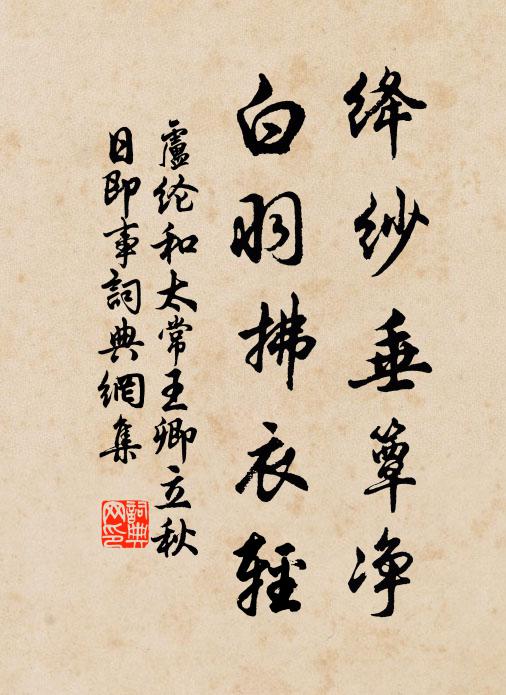 绛纱垂簟净
白羽拂衣輕
盧纶和太常王卿立秋
日即事詞典網集
詞典网印